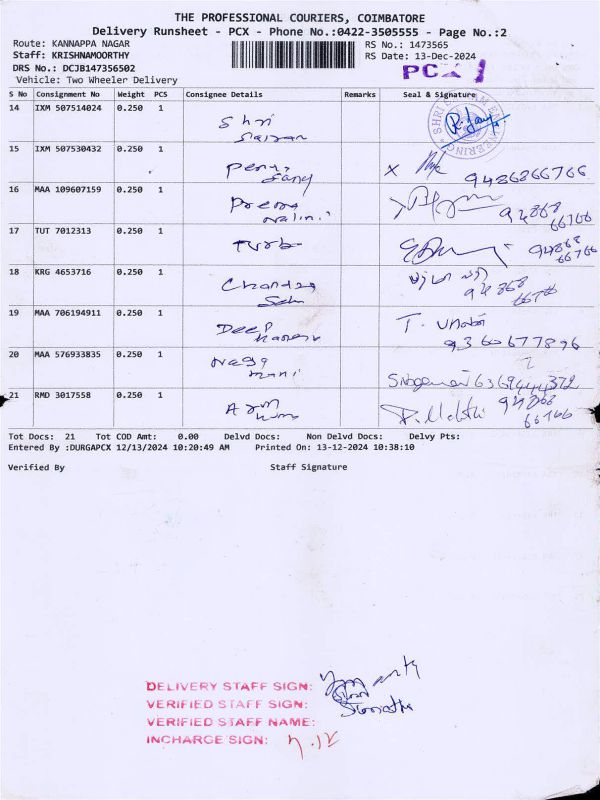 THE PROFESSIONAL COURIERS, COIMBATORE
Delivery Runsheet - PCX - Phone No.:0422-3505555 - Page No.:2
Route: KANNAPPA NAGAR
RS No.: 1473565
Staff: KRISHNAMOORTHY
RS Date: 13-Dec-2024
DRS No.: DCJB147356502
PCX 1
Vehicle: Two Wheeler Delivery
S No Consignment No Weight PCS Consignee Details Remarks Seal & Signature
14 IXM 507514024 0.250 1
Shri
15 IXM 507530432 0.250 1
X 9486866766
16 MAA 109607159 0.250 1
Prema
Nalini
94868
66766
17 TUT 7012313 0.250 1
94868
66766
18 KRG 4653716 0.250 1
Chandra
94868
66766
19 MAA 706194911 0.250 1
Deep
9360677896
20 MAA 576933835 0.250 1
Naga
mani
21 RMD 3017558 0.250 1
94868
66766
Tot Docs: 21 Tot COD Amt: 0.00 Delvd Docs: Non Delvd Docs: Delvy Pts:
Entered By :DURGAPCX 12/13/2024 10:20:49 AM Printed On: 13-12-2024 10:38:10
Verified By Staff Signature
DELIVERY STAFF SIGN:
VERIFIED STAFF SIGN:
VERIFIED STAFF NAME:
INCHARGE SIGN: